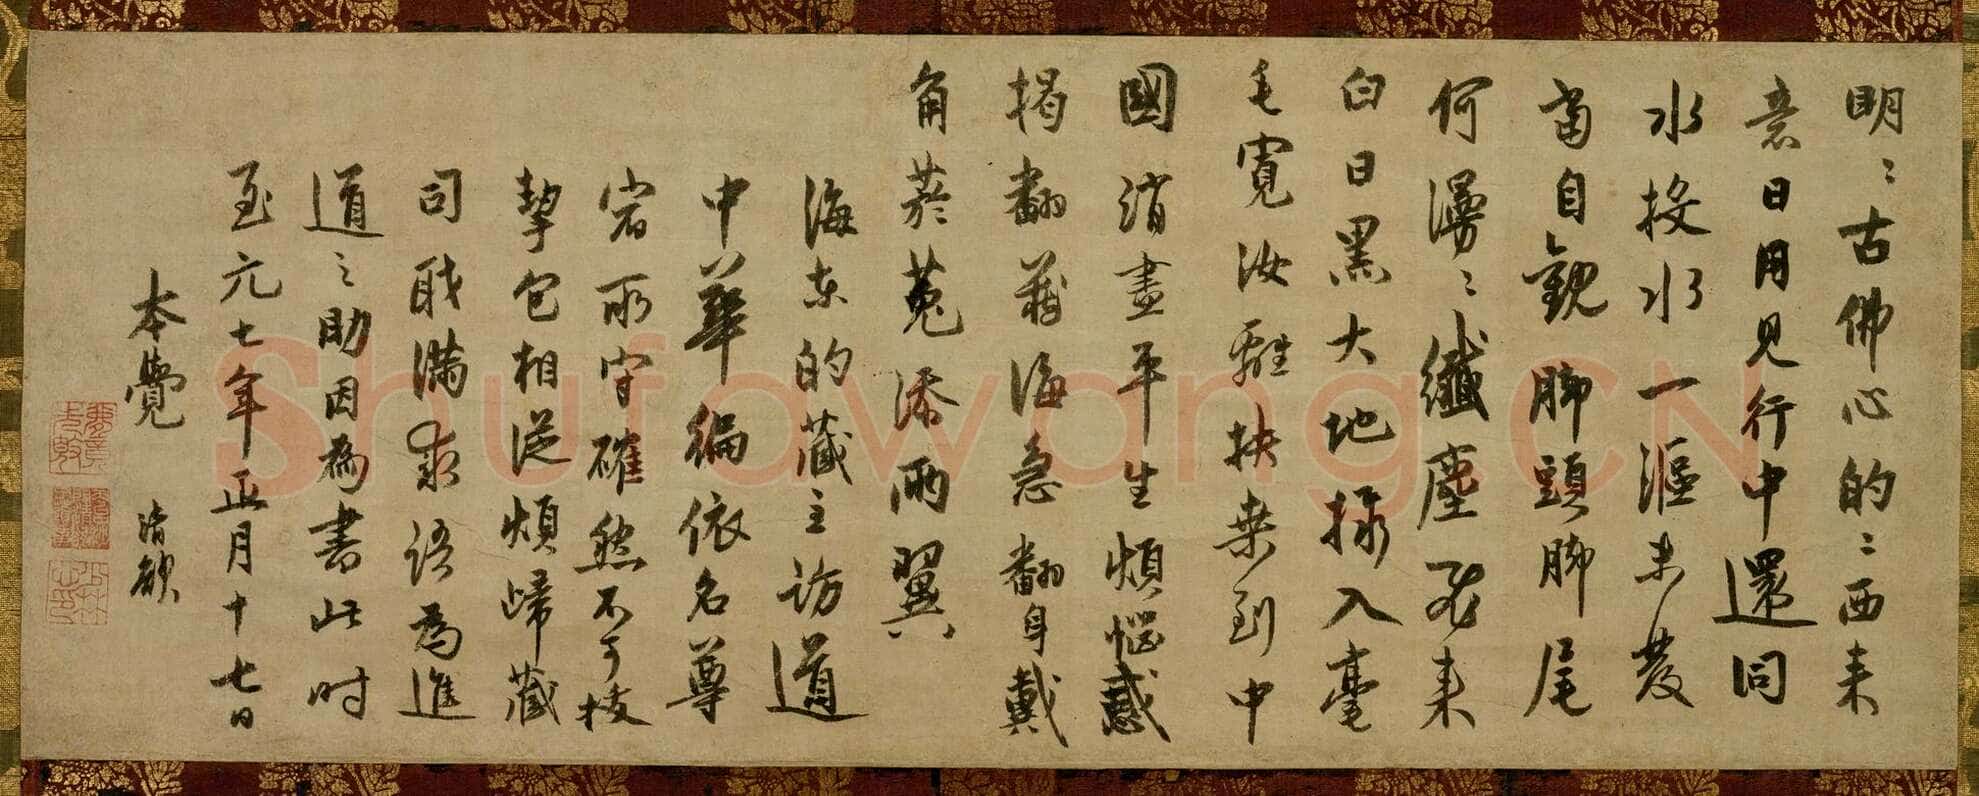 明〻古佛心的〻西来
意日用見行中還同
水投水一漚未發
當自觀脚頭脚尾
何漫〻纖塵不来
白日黑大地擲入毫
毛寬汝離扶桒到中
國消盡平生煩惱惑
揭翻藏海急翻身戴
角菸菟添兩翼
海东的藏主訪道
中華編依名尊
宿所守確然不可枝
挈包相從煩歸藏
司職滿求語為進
道之助因為書此时
至元七年正月十七日
本覺 清欲
Shufawang.CN